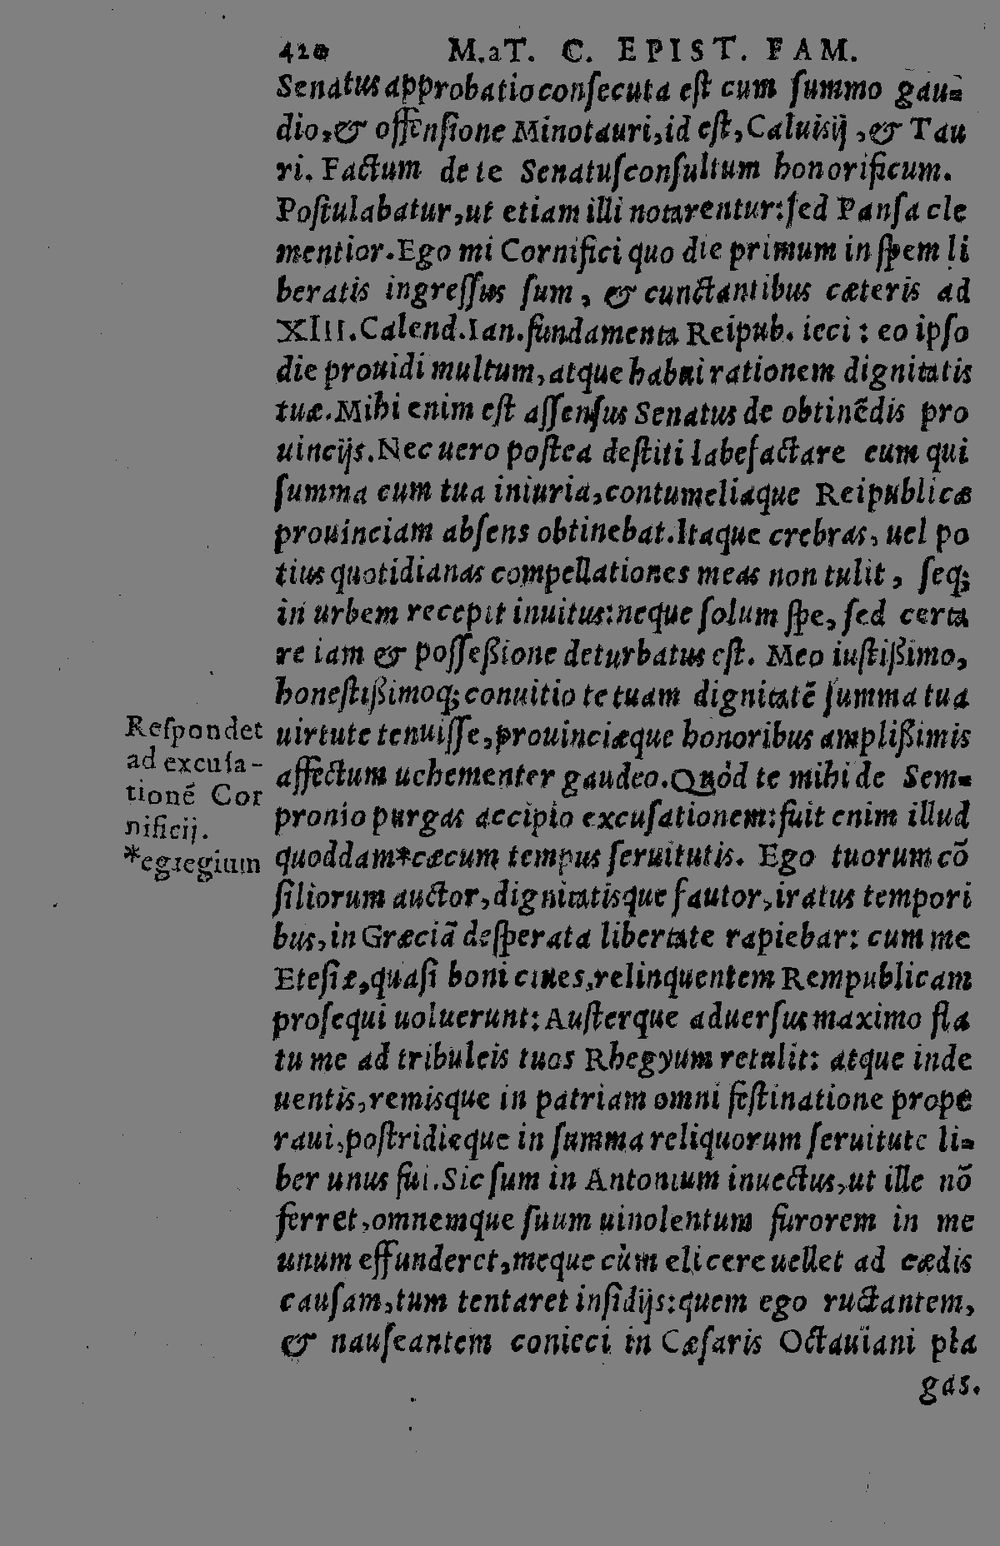 420 M. T. C. EPIST. FAM.
Senatus approbatio conſecuta eſt cum ſummo gau-
dio, & offenſione Minotauri, id eſt, Caluisij, & Tau
ri. Factum de te Senatuſconſultum honorificum.
Poſtulabatur, ut etiam illi notarentur: ſed Panſa cle
mentior. Ego mi Cornifici quo die primum in ſpem li
beratis ingreſſus ſum, & cunctantibus cæteris ad
XIII. Calend. Ian. fundamenta Reipub. ieci: eo ipſo
die prouidi multum, atque habui rationem dignitatis
tuæ. Mihi enim eſt aſſenſus Senatus de obtinẽdis pro
uincijs. Nec uero poſtea deſtiti labefactare eum qui
ſumma cum tua iniuria, contumeliaque Reipublicæ
prouinciam abſens obtinebat. Itaque crebras, uel po
tius quotidianas compellationes meas non tulit, ſeq;
in urbem recepit inuitus: neque ſolum ſpe, ſed certa
re iam & poſſeßione deturbatus eſt. Meo iuſtißimo,
honeſtißimoq; conuitio te tuam dignitatẽ ſumma tua
uirtute tenuiſſe, prouinciæque honoribus amplißimis
affectum uehementer gaudeo. Quòd te mihi de Sem-
pronio purgas accipio excuſationem: fuit enim illud
quoddam*cæcum tempus ſeruitutis. Ego tuorum cõ
ſiliorum auctor, dignitatisque fautor, iratus tempori
bus, in Græciã deſperata libertate rapiebar: cum me
Eteſiæ, quaſi boni ciues, relinquentem Rempublicam
proſequi uoluerunt: Auſterque aduerſus maximo fla
tu me ad tribuleis tuos Rhegyum retulit: atque inde
uentis, remisque in patriam omni feſtinatione prope
raui, poſtridieque in ſumma reliquorum ſeruitute li-
ber unus fui. Sic ſum in Antonium inuectus, ut ille nõ
ferret, omnemque ſuum uinolentum furorem in me
unum effunderet, meque cùm elicere uellet ad cædis
cauſam, tum tentaret inſidijs: quem ego ructantem,
& nauſeantem conieci in Cæſaris Octauiani pla
gas.
Reſpondet
ad excuſa-
tionẽ Cor
nificij.
*egregium